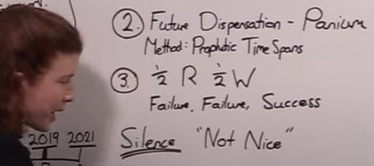 ② Future Dispensation - Panium
Method: Prophetic Time Spans
③ ½ R ½ W
Failure, Failure, Success
Silence "Not Nice"
2019 2021